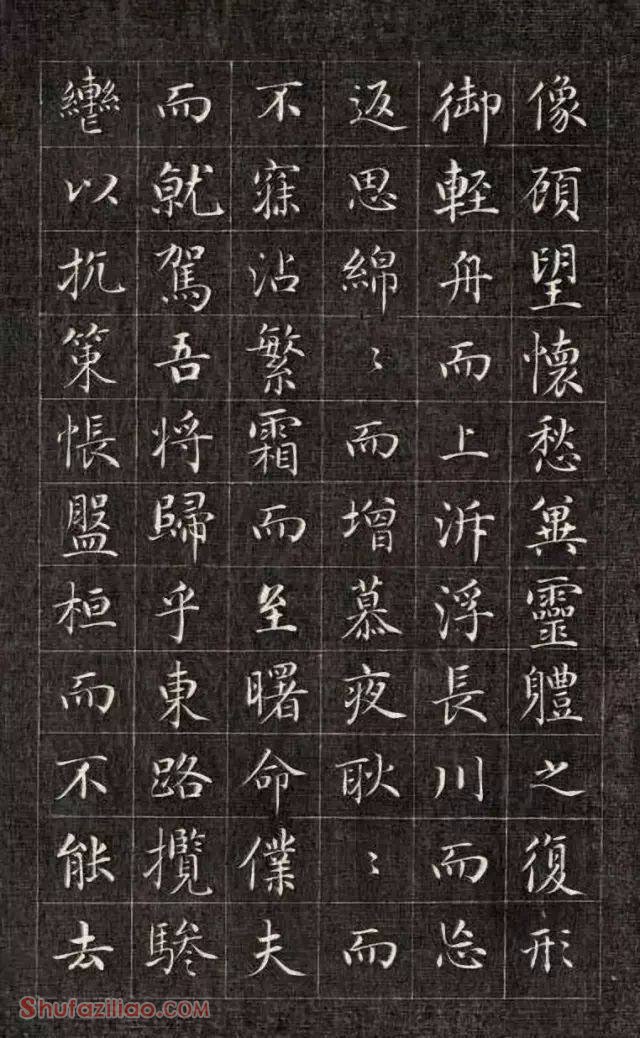 像顧望懷愁冀靈體之復形
御輕舟而上泝浮長川而忘
返思綿〻而增慕夜耿〻而
不寐沾繁霜而至曙命僕夫
而就駕吾將歸乎東路攬騑
轡以抗策悵盤桓而不能去
Shufaziliao.com